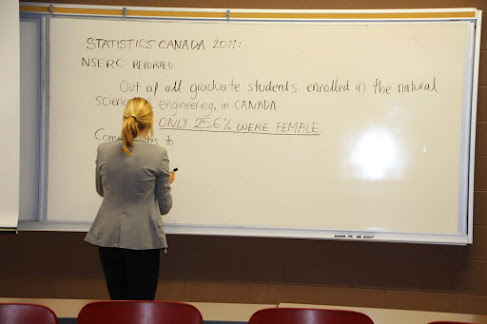 STATISTICS CANADA 2011:
NSERC REPORTED:
Out of all graduate students enrolled in the natural
engineering, in CANADA
ONLY 25.6% WERE FEMALE
to